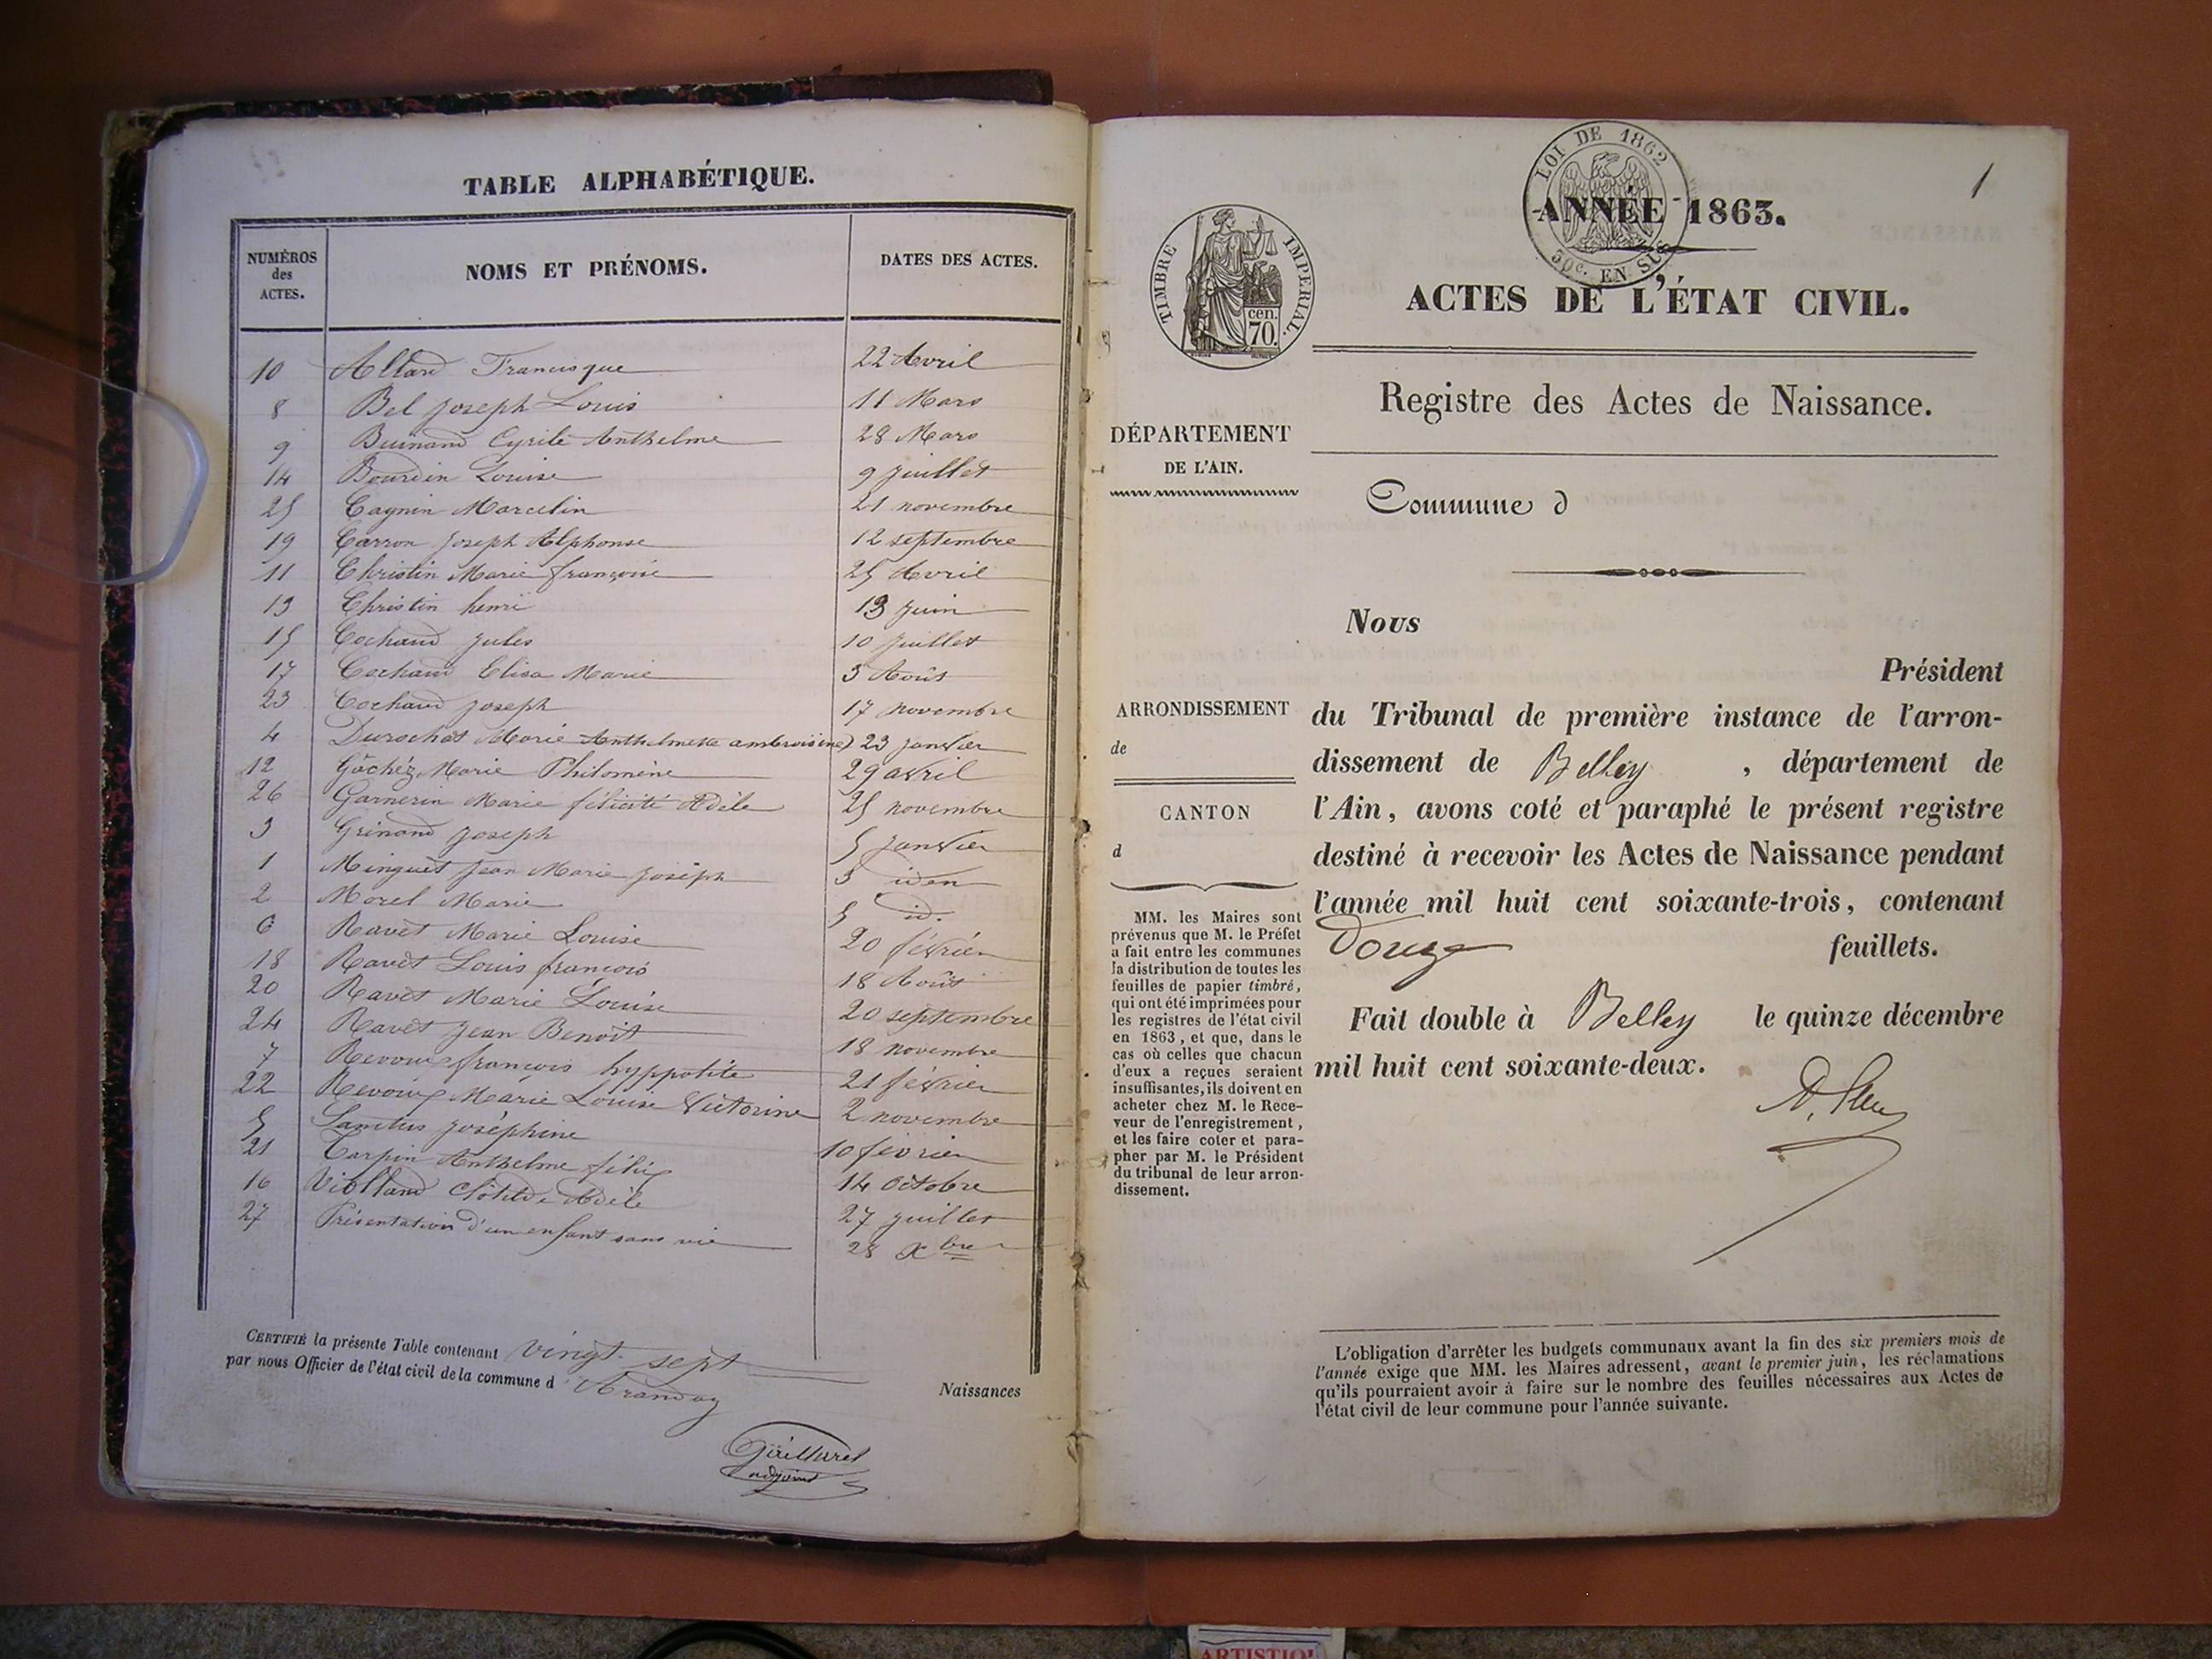 TABLE ALPHABÉTIQUE.
NUMÉROS
des
ACTES.
NOMS ET PRÉNOMS.
DATES DES ACTES.
10 Allard Francisque 22 Avril
8 Bel Joseph Louis 11 Mars
9 Buinand Cyrile Anthelme 28 Mars
14 Bourdin Louise 9 juillet
25 Cagnin Marcelin 21 novembre
19 Carron Joseph Alphonse 12 septembre
11 Christin Marie françoise 25 Avril
13 Christin henri 13 juin
15 Cochand jules 10 juillet
17 Cochand Elisa Marie 3 Août
23 Cochand joseph 17 novembre
4 Durochat Marie Anthelmette ambroisine 23 janvier
12 Gâchéz Marie Philomène 29 avril
26 Garnerin Marie félicité Adèle 25 novembre
3 Grinand joseph 5 janvier
1 Minguet Jean Marie joseph 5 idem
2 Morel Marie 5 id.
6 Ravet Marie Louise 20 février
18 Ravet Louis françois 18 Août
20 Ravet Marie Louise 20 septembre
24 Ravet Jean Benoit 18 novembre
7 Revoux françois hyppolite 21 février
22 Revoux Marie Louise Victorine 2 novembre
5 joséphine 10 février
21 Tarpin Anthelme félix 14 octobre
16 Violland Clotilde Adèle 27 juillet
27 Présentation d'un enfant sans vie 28 Xbre
CERTIFIÉ la présente Table contenant vingt-sept
par nous Officier de l'état civil de la commune d Arandas
Naissances
adjoint
1
LOI DE 1862
50c. EN SUS
TIMBRE IMPÉRIAL.
cen.
70.
ANNÉE 1863.
ACTES DE L'ÉTAT CIVIL.
Registre des Actes de Naissance.
DÉPARTEMENT
DE L'AIN.
Commune d
ARRONDISSEMENT
de
CANTON
d
MM. les Maires sont
prévenus que M. le Préfet
a fait entre les communes
la distribution de toutes les
feuilles de papier timbré,
qui ont été imprimées pour
les registres de l'état civil
en 1863, et que, dans le
cas où celles que chacun
d'eux a reçues seraient
insuffisantes, ils doivent en
acheter chez M. le Rece-
veur de l'enregistrement,
et les faire coter et para-
pher par M. le Président
du tribunal de leur arron-
dissement.
Nous
Président
du Tribunal de première instance de l'arron-
dissement de Belley, département de
l'Ain, avons coté et paraphé le présent registre
destiné à recevoir les Actes de Naissance pendant
l'année mil huit cent soixante-trois, contenant
Douze feuillets.
Fait double à Belley le quinze décembre
mil huit cent soixante-deux.
L'obligation d'arrêter les budgets communaux avant la fin des six premiers mois de
l'année exige que MM. les Maires adressent, avant le premier juin, les réclamations
qu'ils pourraient avoir à faire sur le nombre des feuilles nécessaires aux Actes de
l'état civil de leur commune pour l'année suivante.